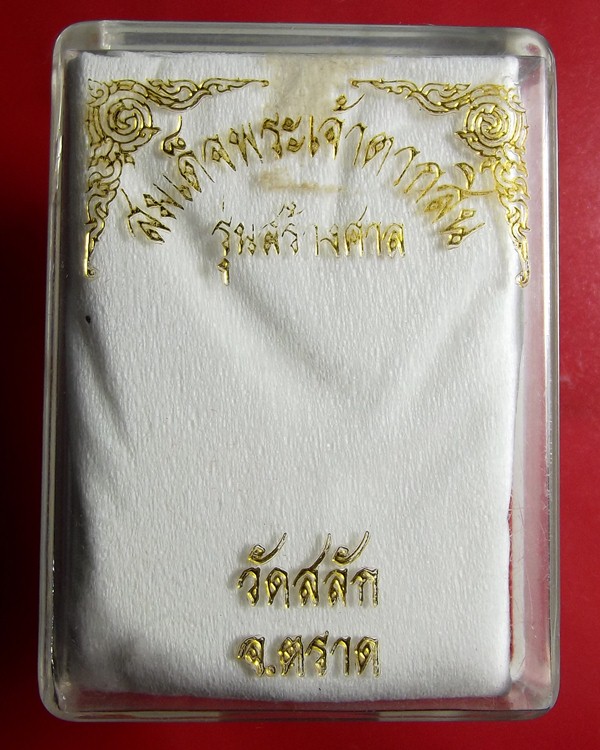 สมเด็จพระเจ้าตากสิน
รุ่นสร้างศาล
วัดสลัก
จ.ตราด